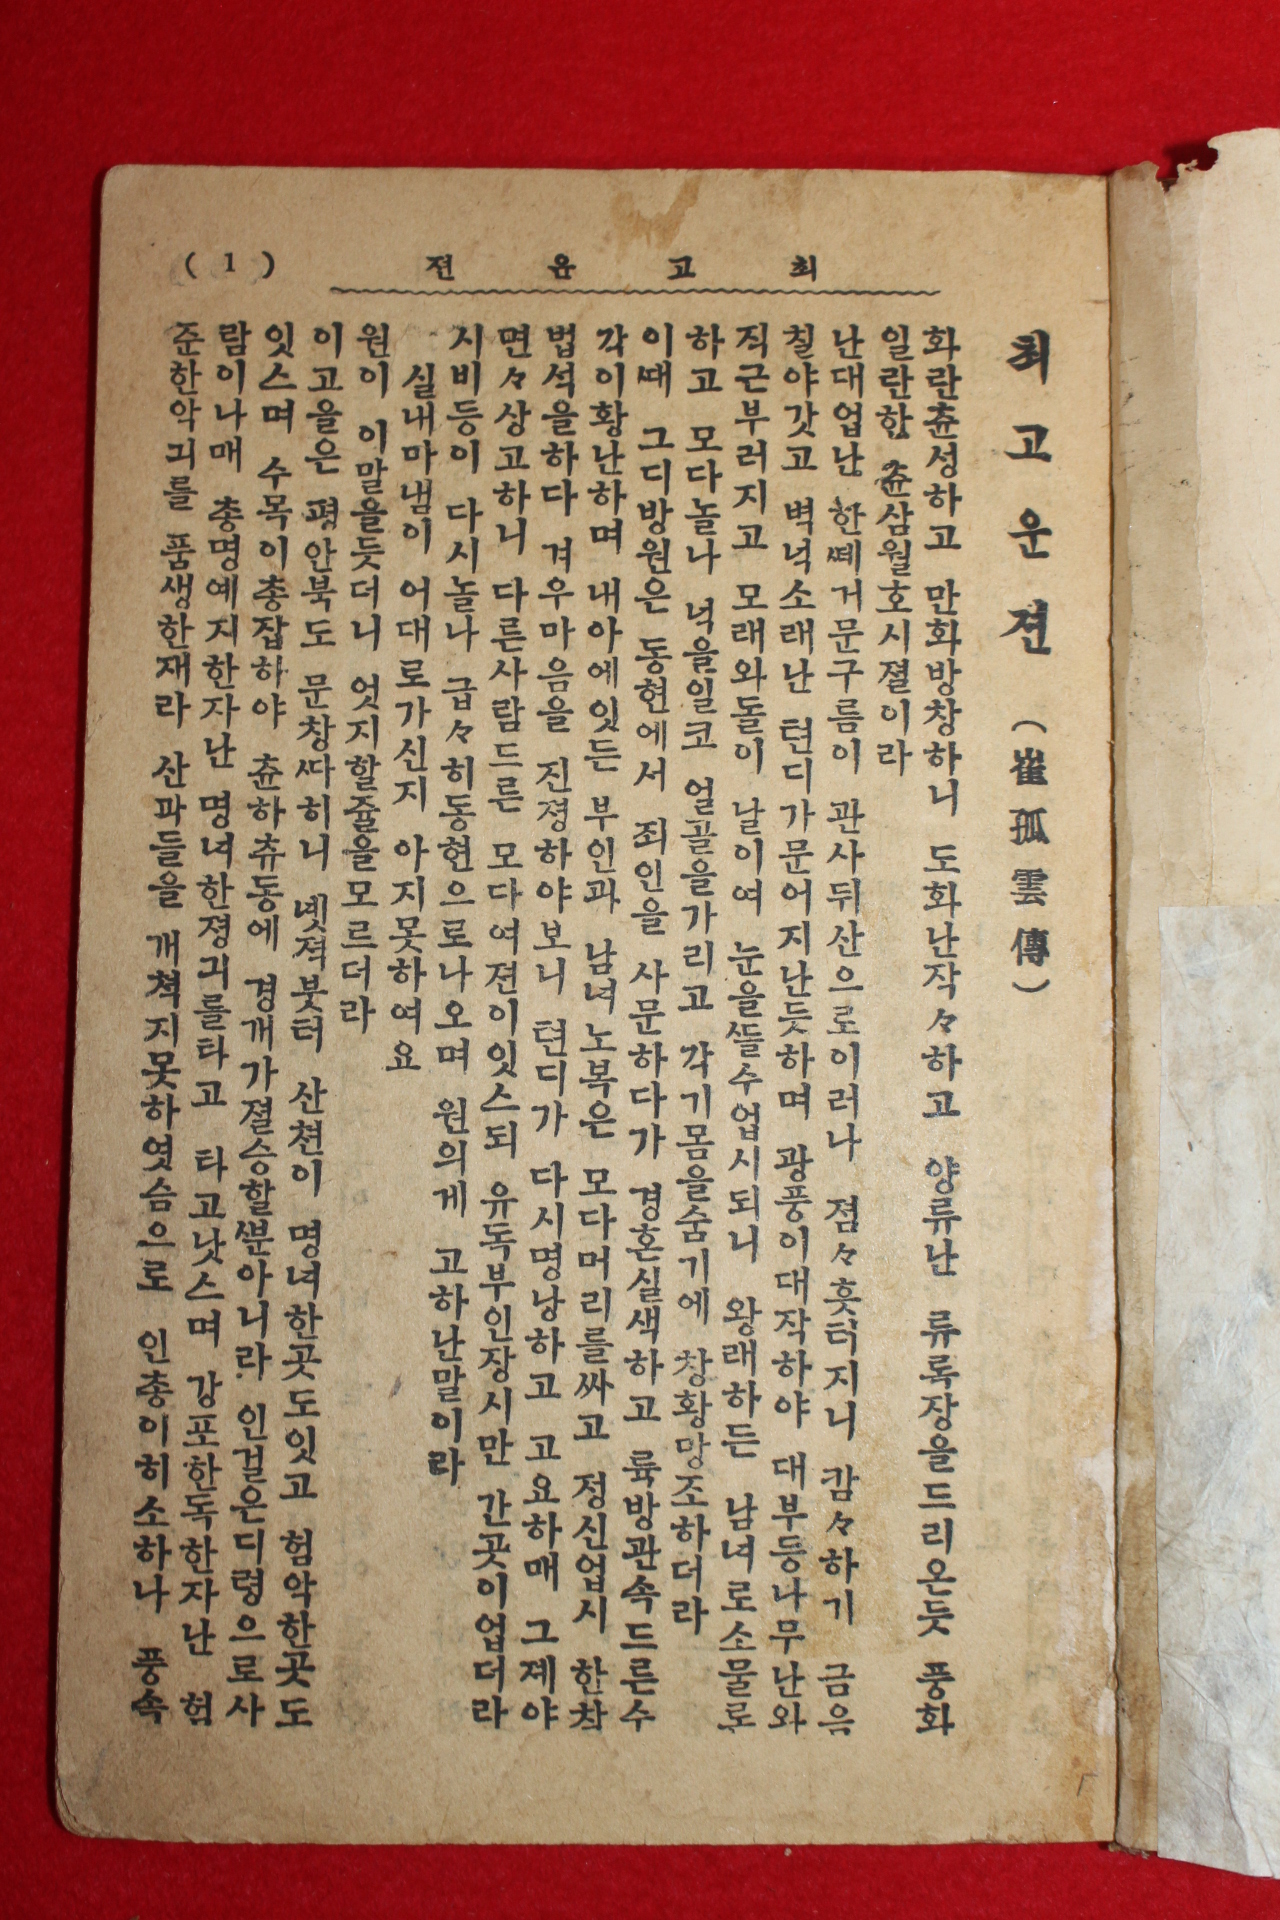 전 운 고 최
( 1 )
최 고 운 젼 (崔孤雲傳)
화란츈셩하고 만화방창하니 도화난작々하고 양류난 류록장을드리온듯 풍화
일란한 츈삼월호시졀이라
난대업난 한ᄯᅦ거문구름이 관사뒤산으로이러나 졈々흣터지니 캄々하기 금음
칠야갓고 벽녁소래난 텬디가문어지난듯하며 광풍이대작하야 대부등나무난와
직근부러지고 모래와돌이 날이여 눈을ᄯᅳᆯ수업시되니 왕래하든 남녀로소물론
하고 모다놀나 넉을일코 얼골을가리고 각기몸을숨기에 창황망조하더라
이ᄯᅢ 그디방원은 동현에서 죄인을 사문하다가 경혼실색하고 륙방관속드른수
각이황난하며 내아에잇든 부인과 남녀노복은 모다머리를싸고 정신업시 한참
법석을하다 겨우마음을 진졍하야보니 텬디가 다시명낭하고 고요하매 그졔야
면々상고하니 다른사람드른 모다여젼이잇스되 유독부인장시만 간곳이업더라
시비등이 다시놀나 급々히동현으로나오며 원의게 고하난말이라
실내마냄이 어대로가신지 아지못하여요
원이 이말을듯더니 엇지할쥴을모르더라
이고을은 평안북도 문창ᄯᅡ히니 녯젹붓터 산쳔이 명녀한곳도잇고 험악한곳도
잇스며 수목이총잡하야 츈하츄동에 경개가졀승할ᄲᅮᆫ아니라 인걸은디령으로사
람이나매 총명예지한자난 명녀한졍긔를타고 타고낫스며 강포한독한자난 험
준한악긔를 품생한재라 산파들을 개쳑지못하엿슴으로 인총이히소하나 풍속